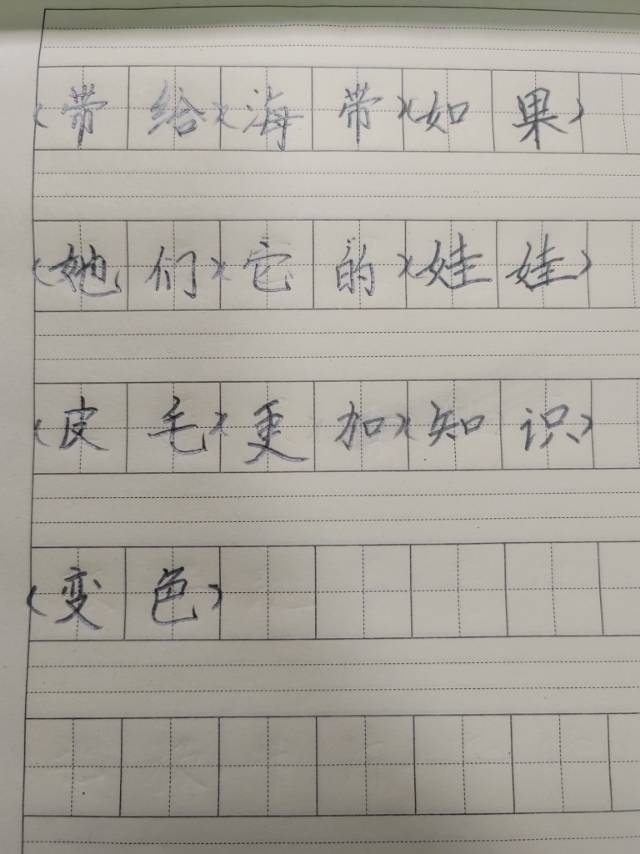 (带给)(海带)(如果)
(她们)(它的)(娃娃)
(皮毛)(更加)(知识)
(变色)